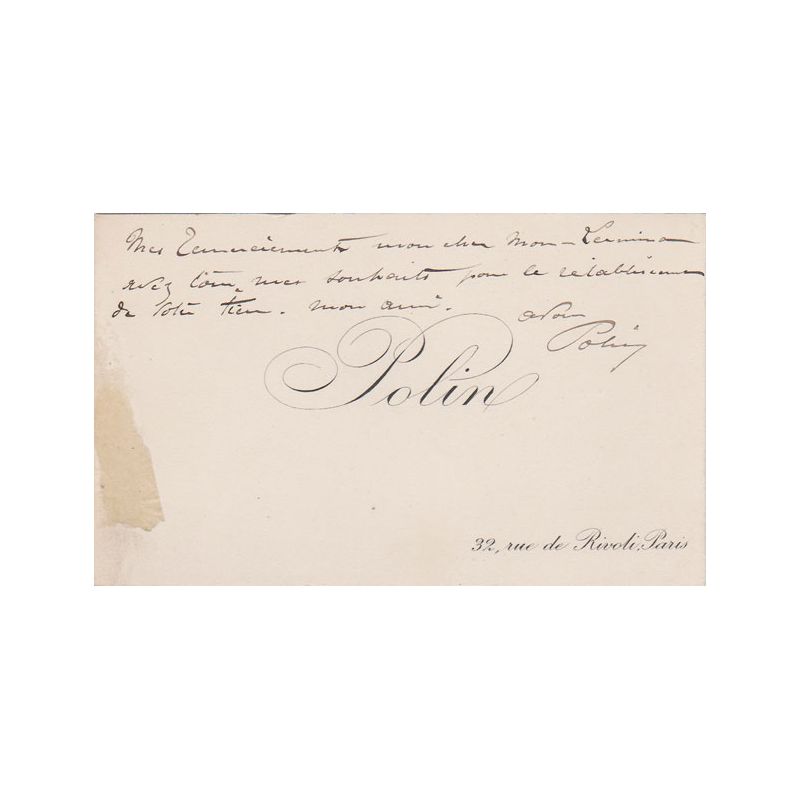 Mes remerciements mon cher Mon-
avez mes souhaits pour le rétablissement
de votre mon ami. à vous
Polin
Polin
32, rue de Rivoli, Paris